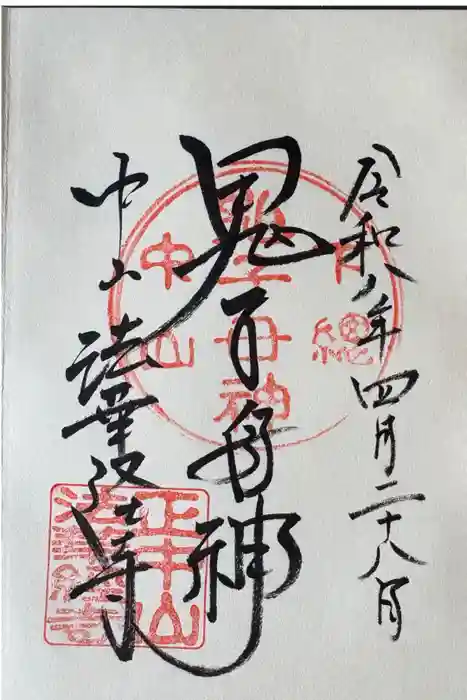 令和八年四月二十八日
鬼子母神
中山法華経寺
下總
鬼子母神
中山
正中山
法華經寺